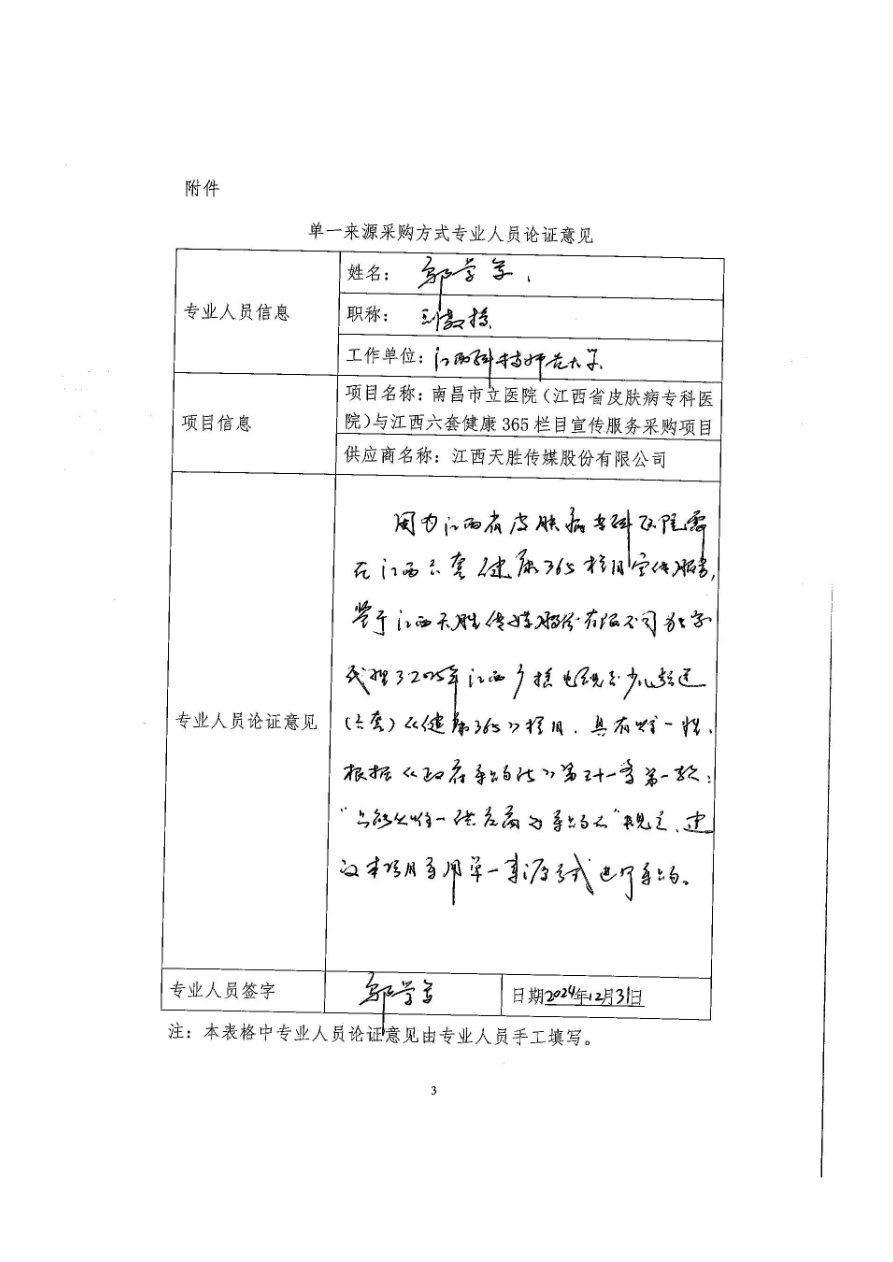 附件
单一来源采购方式专业人员论证意见
专业人员信息
姓名：
职称：副教授
工作单位：江西科技师范大学
项目信息
项目名称：南昌市立医院（江西省皮肤病专科医
院）与江西六套健康 365 栏目宣传服务采购项目
供应商名称：江西天胜传媒股份有限公司
专业人员论证意见
因为江西省皮肤病专科医院需
在江西六套健康365栏目宣传服务，
鉴于江西天胜传媒股份有限公司独家
代理了2025年江西广播电视台少儿频道
（六套）《健康365》栏目，具有唯一性，
根据《政府采购法》第三十一条第一款：
“只能从唯一供应商处采购的”规定，建
议本项目采用单一来源方式进行采购。
专业人员签字
日期2024年12月31日
注：本表格中专业人员论证意见由专业人员手工填写。
3